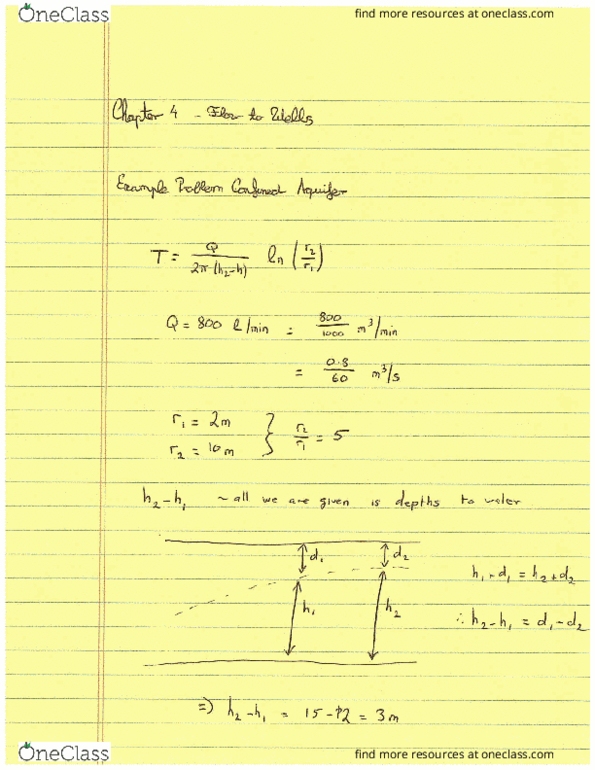 OneClass
find more resources at oneclass.com
Chapter 4 - Flow to Wells
Example Problem Confined Aquifer
T = Q / 2π(h₂-h) ln (r₂/r₁)
Q = 800 l/min = 800/1000 m³/min
= 0.8/60 m³/s
r₁ = 2m
r₂ = 10m } r₂/r₁ = 5
h₂-h₁ ~ all we are given is depths to water
d₁ d₂
h₁ h₂
h₁+d₁ = h₂+d₂
∴ h₂-h₁ = d₁-d₂
⇒) h₂-h₁ = 15-12 = 3m
OneClass
find more resources at oneclass.com